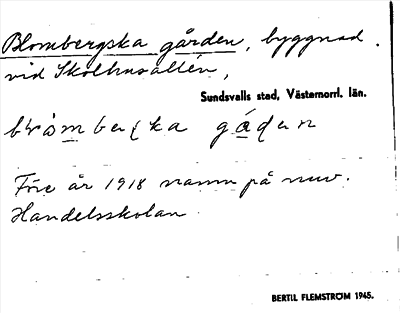 Blombergska gården, byggnad
vid Skolhusallén,
Sundsvalls stad, Västernorrl. län.
gáḍen
Före år 1918 namn på nuv.
Handelsskolan.
BERTIL FLEMSTRÖM 1945.